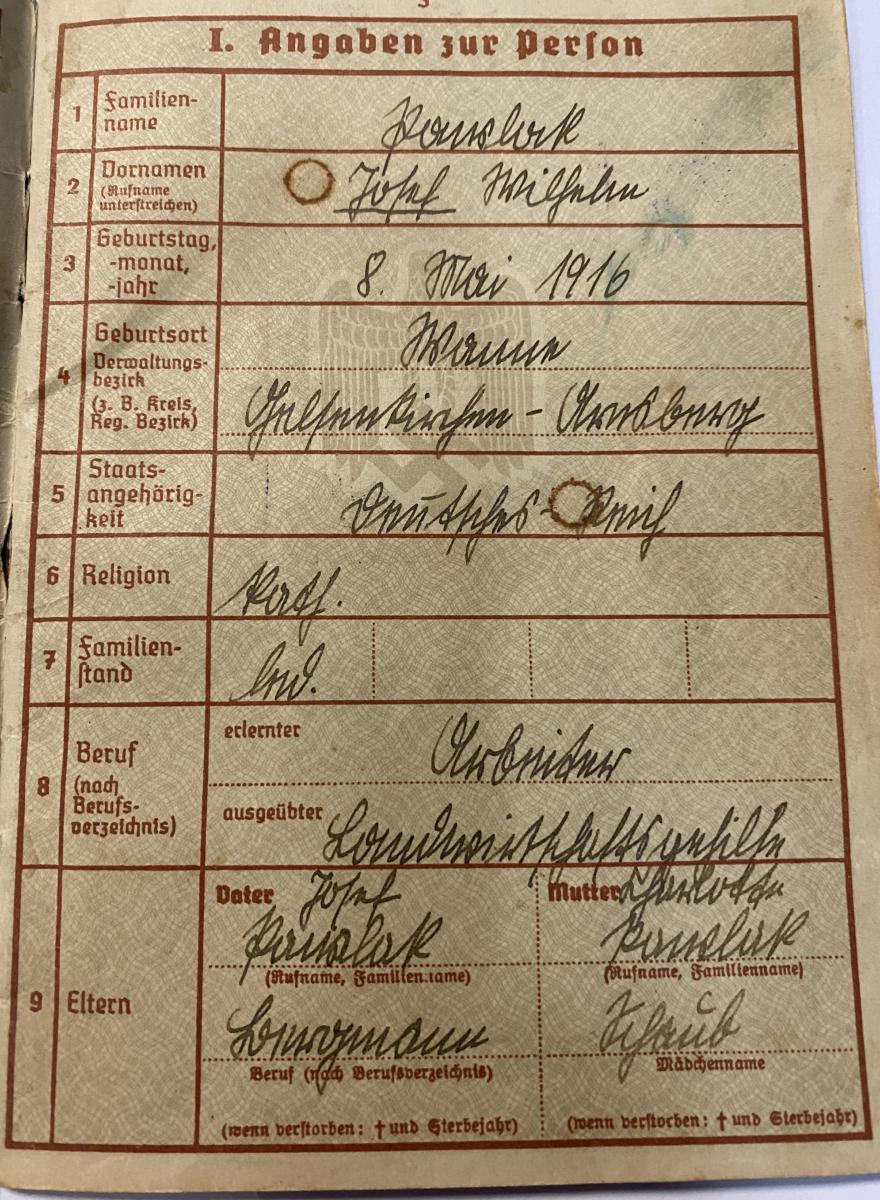 I. Angaben zur Person
1 Familien-
name
Pawslak
2 Vornamen
(Rufname
unterstreichen)
Josef Wilhelm
3 Geburtstag,
-monat,
-jahr
8. Mai 1916
4 Geburtsort
Verwaltungs-
bezirk
(z. B. Kreis,
Reg. Bezirk)
Wanne
Gelsenkirchen - Arnsberg
5 Staats-
angehörig-
keit
Deutsches-Reich
6 Religion
Kath.
7 Familien-
stand
led.
8 Beruf
(nach
Berufs-
verzeichnis)
erlernter
Arbeiter
ausgeübter
Landwirtschaftsgehilfe
9 Eltern
Vater Josef
Pawslak
(Rufname, Familienname)
Bergmann
Beruf (nach Berufsverzeichnis)
(wenn verstorben: † und Sterbejahr)
Mutter Charlotte
Pawslak
(Rufname, Familienname)
Schaub
Mädchenname
(wenn verstorben: † und Sterbejahr)